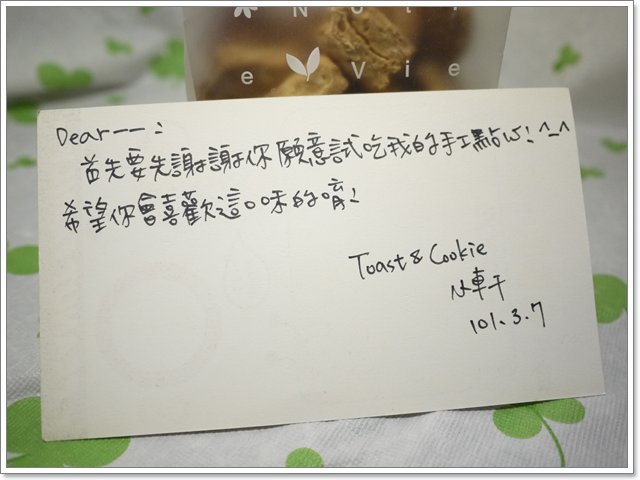 Noti
e Vie
Dear——:
首先要先謝謝你願意試吃我的手工點心!^_^
希望你會喜歡這口味的唷!
Toast & Cookie
小軒
101.3.7